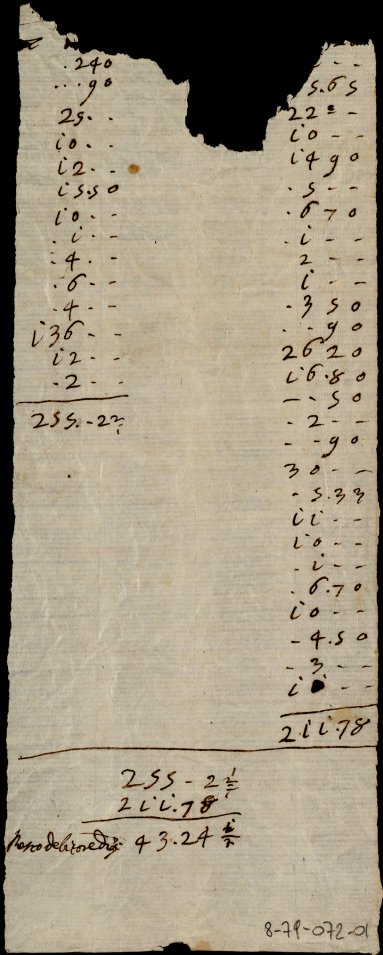 . 240
. . . 90
25 . .
i0 . -
i2 . -
i5.50
i0 . -
. i . -
. 4 . -
. 6 . -
. 4 . -
i36 - -
i2 - -
. 2 - -
255.-2½
. - -
5.65
22 = -
i0 - -
i4 90
. 5 - -
. 6 70
. i - -
2 - -
i - -
. 3 50
. - 90
26 20
i6.80
- - 50
. 2 - -
- - 90
30 - -
- 5.33
ii - -
i0 - -
. i - -
. 6.70
i0 - -
- 4.50
- 3 - -
i - -
2ii.78
255 - 2½
2ii.78
43.24½
8-79-072-01